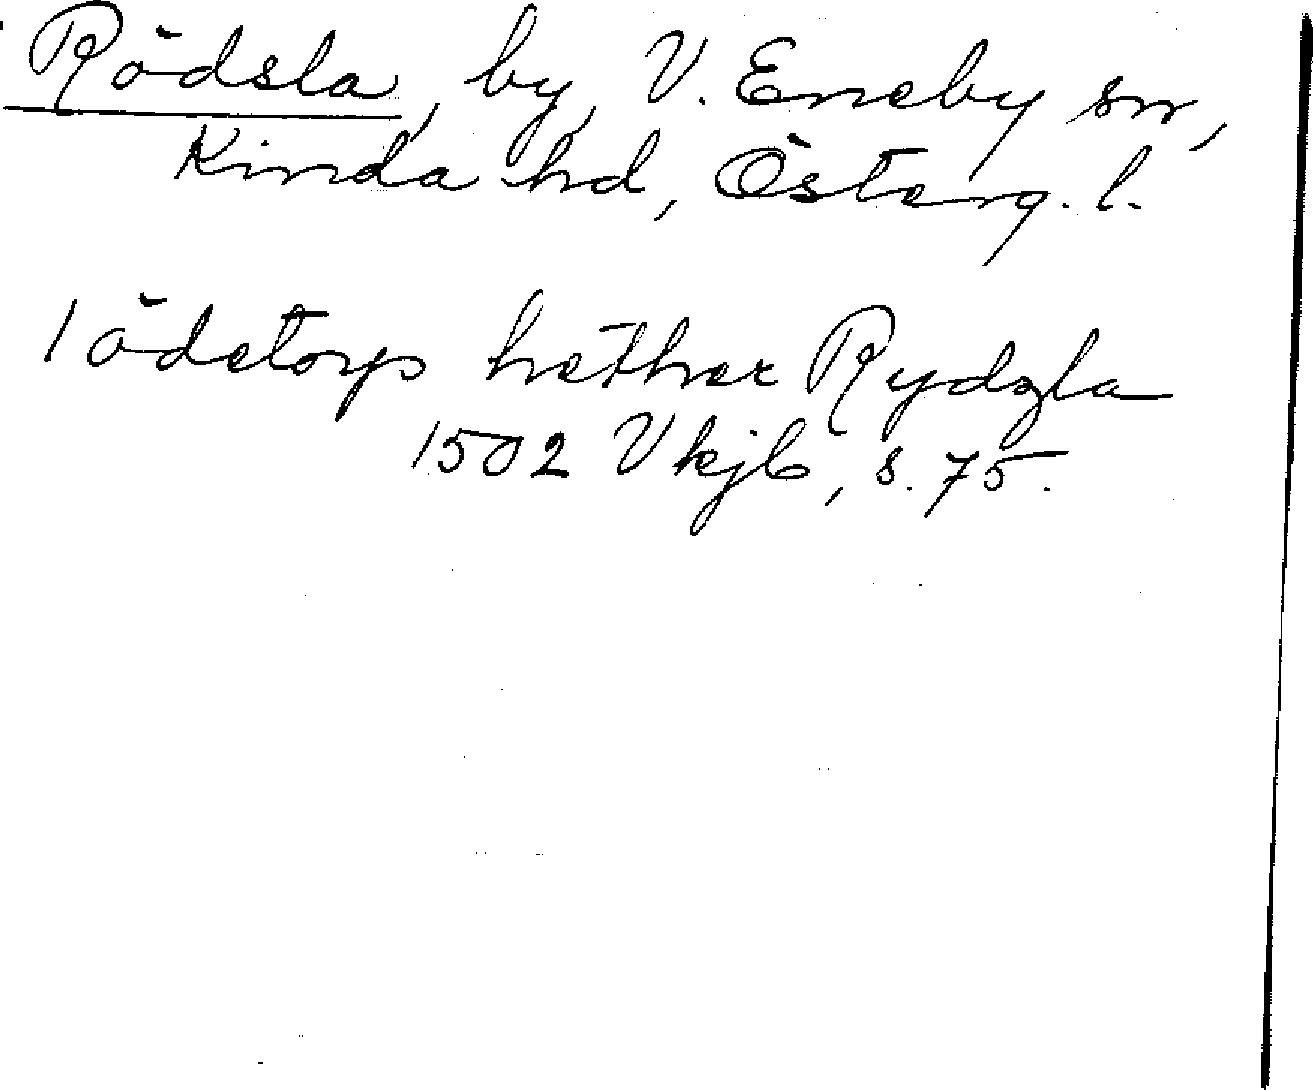 Rödsla, by, V. Eneby sn,
Kinda hd, Österg. l.
1 ödetorp hether Rydzla
1502 Vkjb, s. 75.